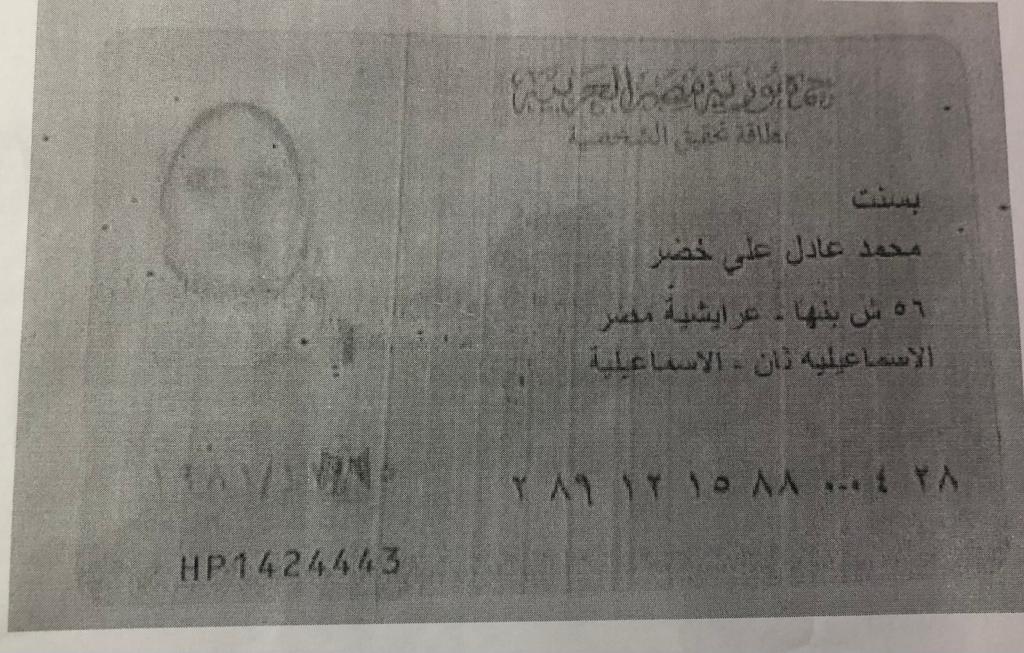 جمهورية مصر العربية
بطاقة تحقيق الشخصية
بسنت
محمد عادل علي خضر
٥٦ ش بنها - عرايشية مصر
الاسماعيليه ثان - الاسماعيلية
٢ ٨٩ ١٢ ١٥ ٨٨ ٠٠٠٤ ٢٨
HP1424443